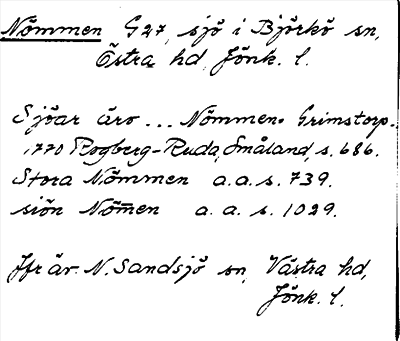 Nömmen G27, sjö i Björkö sn,
Östra hd, Jönk. l.
Sjöar äro ... Nömmen. Grimstorp.
1770 Rogberg-Ruda, Småland, s. 686.
Stora Nömmen a.a. s. 739.
siön Nömen a. a. s. 1029.
Jfr äv. N. Sandsjö sn, Västra hd,
Jönk. l.